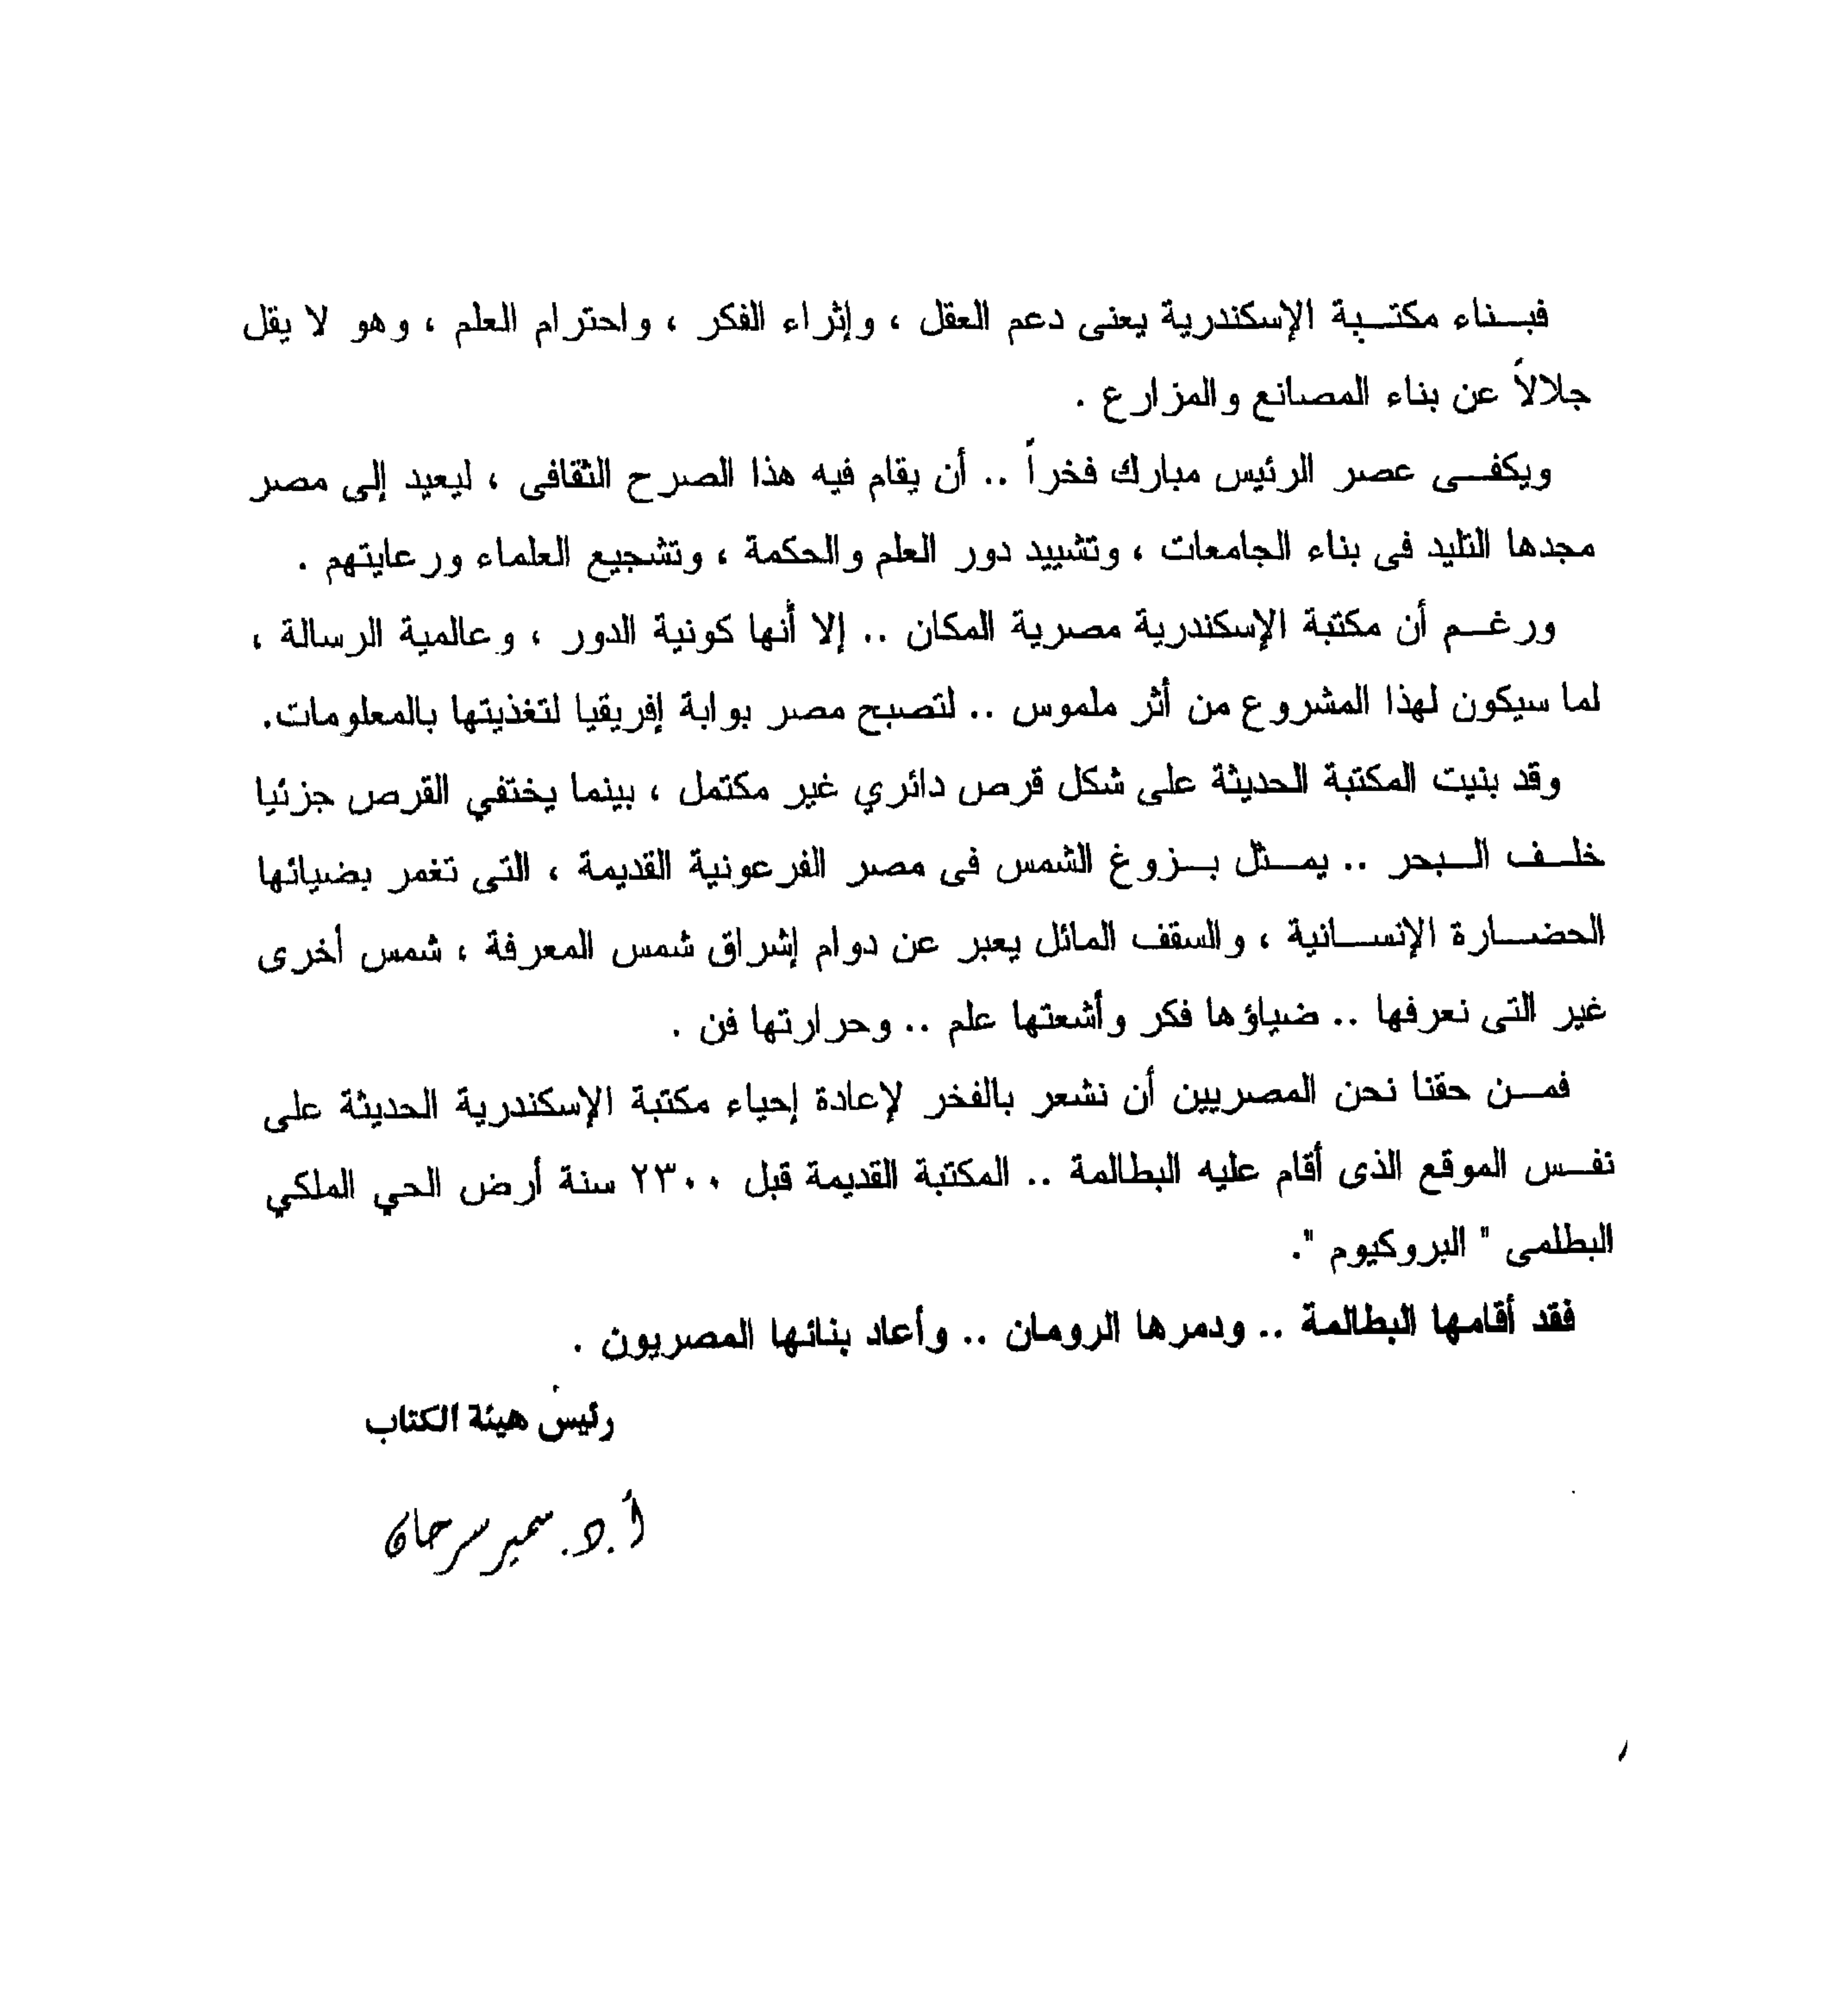 فبناء مكتبة الإسكندرية يعنى دعم العقل ، وإثراء الفكر ، واحترام العلم ، وهو لا يقل
جلالاً عن بناء المصانع والمزارع .
ويكفى عصر الرئيس مبارك فخراً .. أن يقام فيه هذا الصرح الثقافى ، ليعيد إلى مصر
مجدها التليد فى بناء الجامعات ، وتشييد دور العلم والحكمة ، وتشجيع العلماء ورعايتهم .
ورغم أن مكتبة الإسكندرية مصرية المكان .. إلا أنها كونية الدور ، وعالمية الرسالة ،
لما سيكون لهذا المشروع من أثر ملموس .. لتصبح مصر بوابة إفريقيا لتغذيتها بالمعلومات.
وقد بنيت المكتبة الحديثة على شكل قرص دائري غير مكتمل ، بينما يختفي القرص جزئيا
خلف البحر .. يمثل بزوغ الشمس فى مصر الفرعونية القديمة ، التى تغمر بضيائها
الحضارة الإنسانية ، والسقف المائل يعبر عن دوام إشراق شمس المعرفة ، شمس أخرى
غير التى نعرفها .. ضياؤها فكر وأشعتها علم .. وحرارتها فن .
فمن حقنا نحن المصريين أن نشعر بالفخر لإعادة إحياء مكتبة الإسكندرية الحديثة على
نفس الموقع الذى أقام عليه البطالمة .. المكتبة القديمة قبل ٢٣٠٠ سنة أرض الحي الملكي
البطلمى " البروكيوم ".
فقد أقامها البطالمة .. ودمرها الرومان .. وأعاد بنائها المصريون .
رئيس هيئة الكتاب
أ.د. سمير سرحان